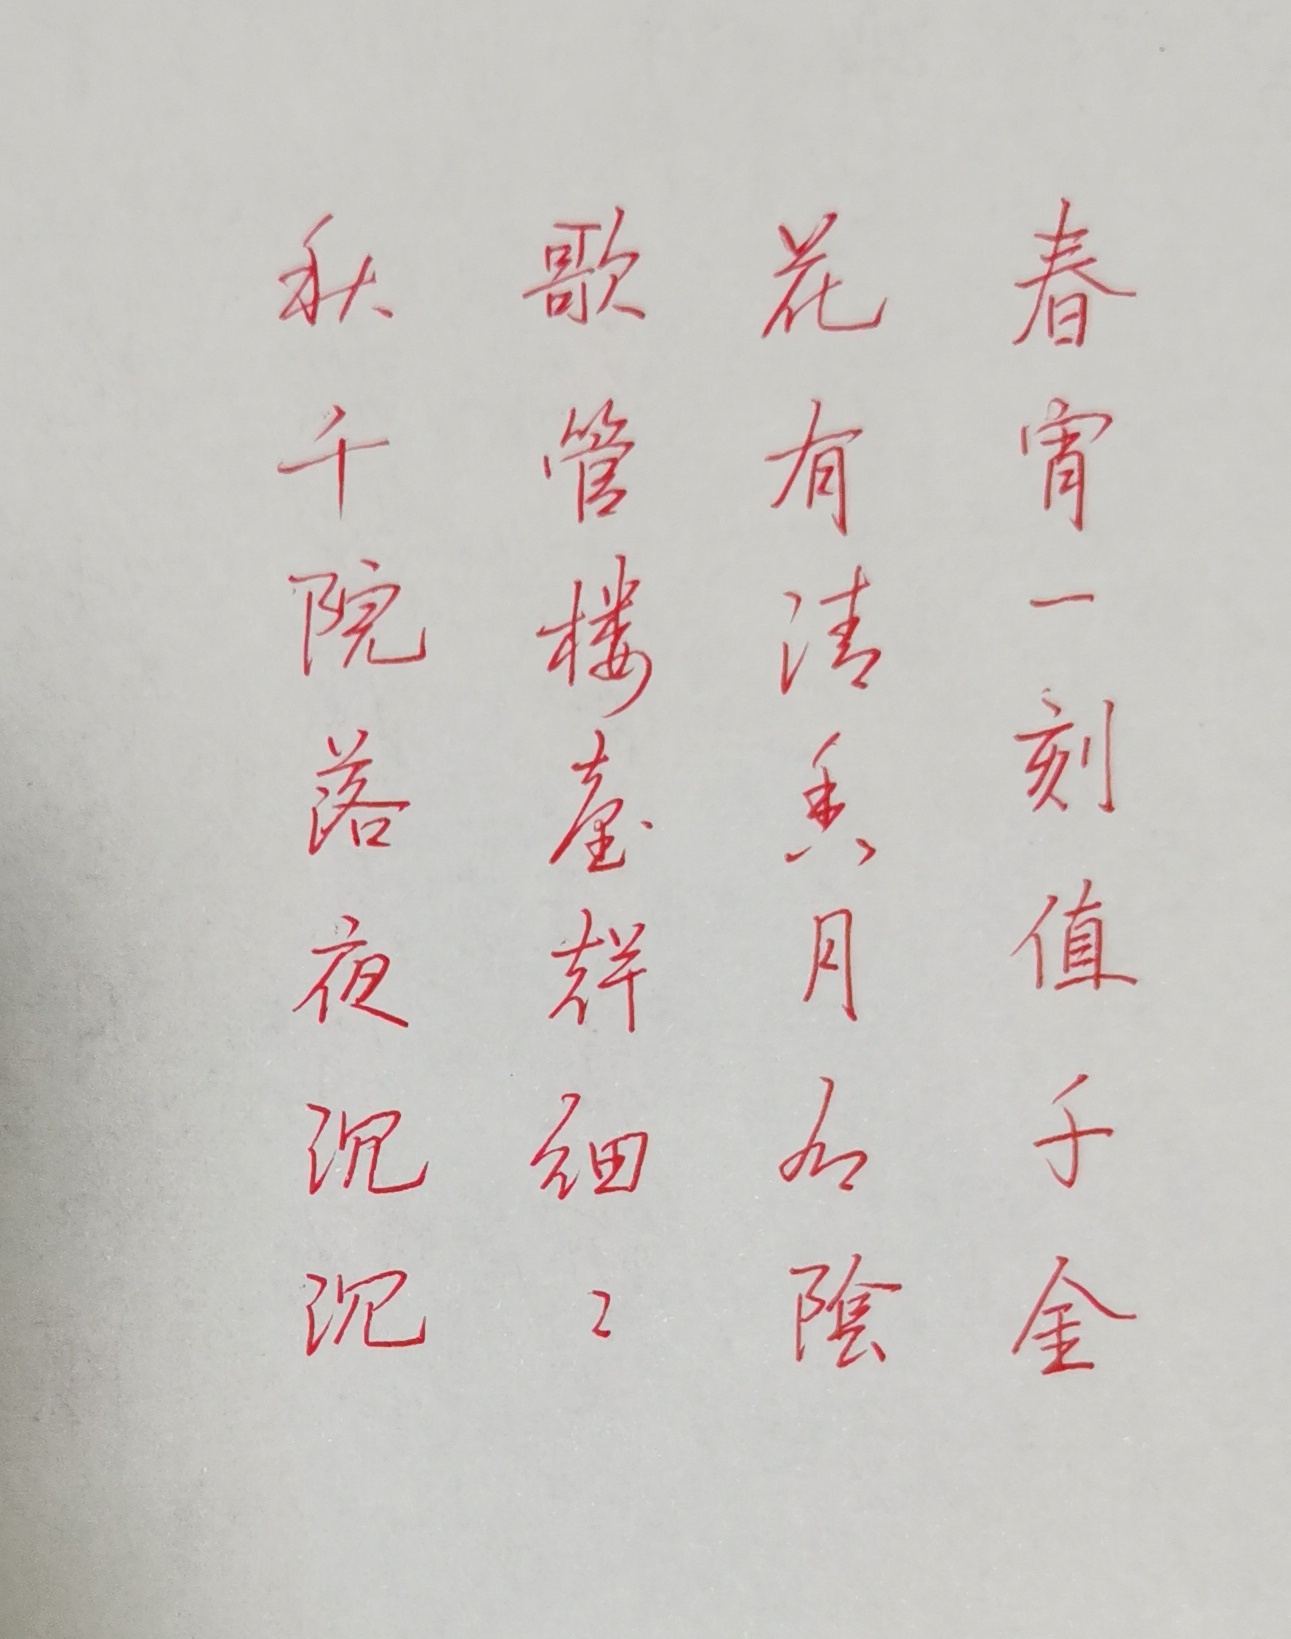 春宵一刻值千金
花有清香月有陰
歌管楼臺聲细々
秋千院落夜沉沉